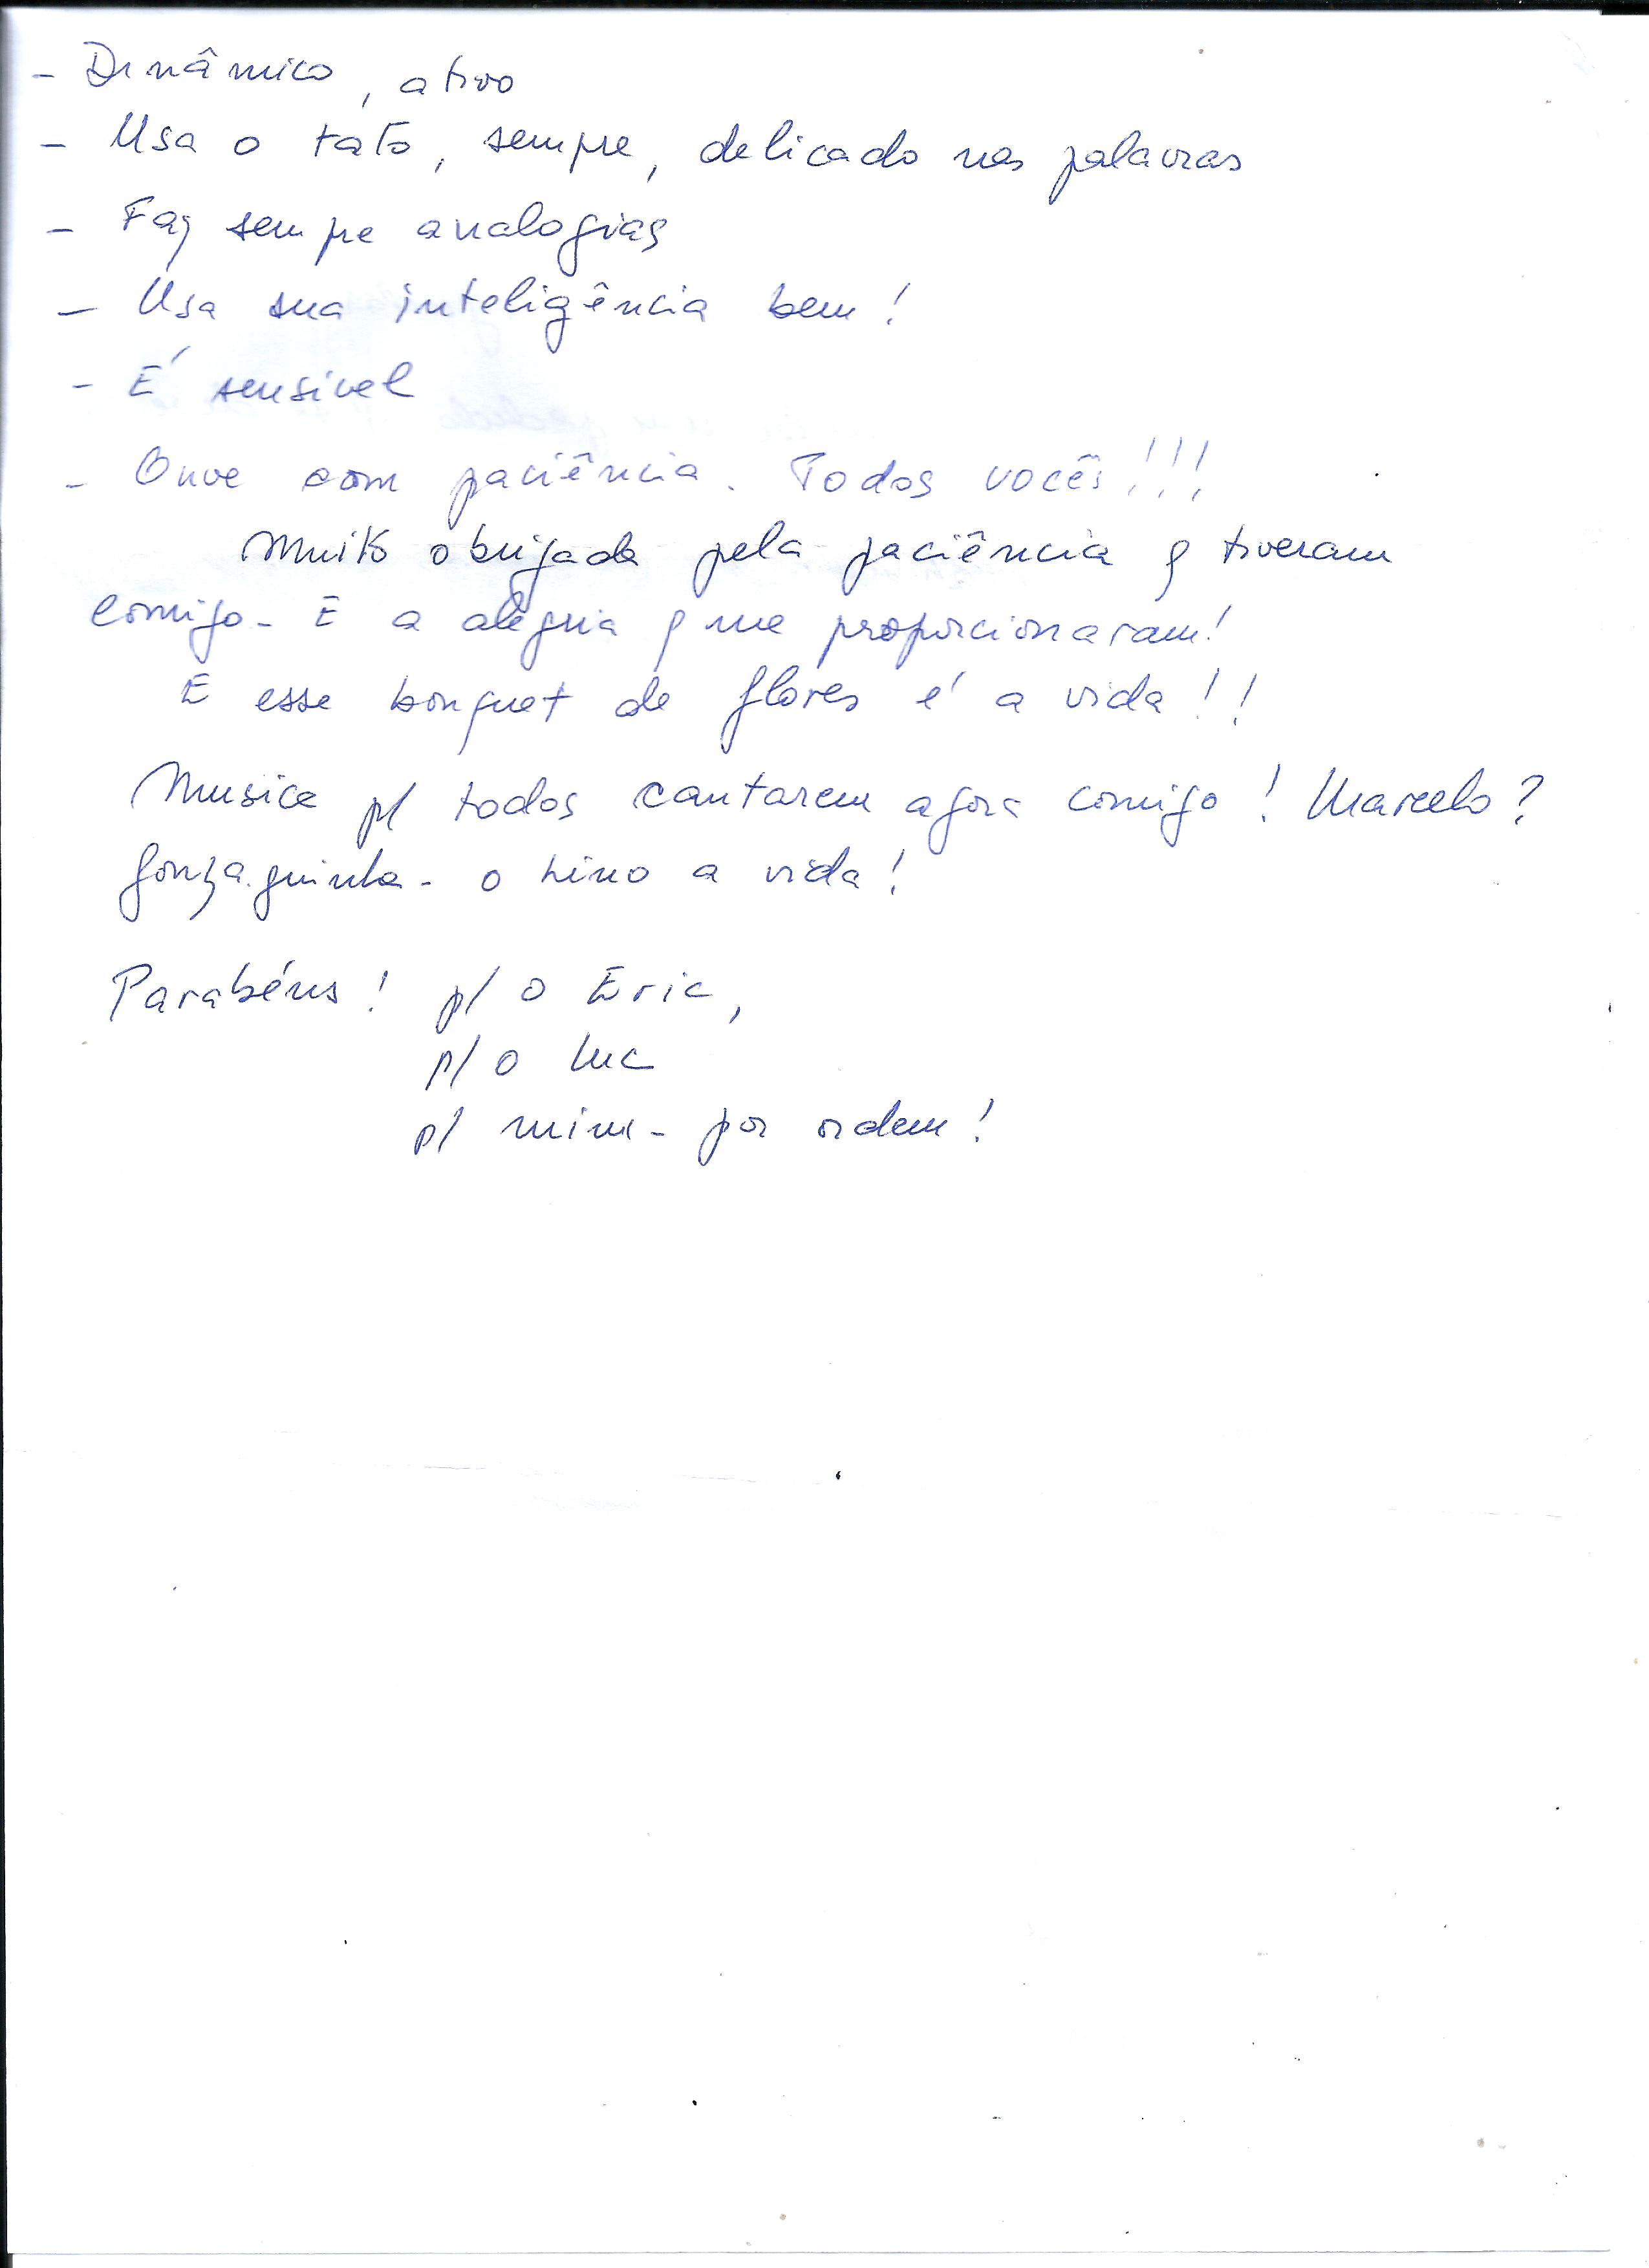 - Dinâmico, ativo
- Usa o tato, sempre, delicado nas palavras
- Faz sempre analogias
- Usa sua inteligência bem!
- É sensivel
- Ouve com paciência. Todos vocês!!!
Muito obrigada pela paciência q tiveram
comigo - E a alegria q me proporcionaram!
E esse bouquet de flores é a vida!!
Musica p/ todos cantarem agora comigo! Marcelo?
Gonzaguinha - o hino a vida!
Parabéns! p/ o Eric,
p/ o Luc
p/ mim - por ordem!